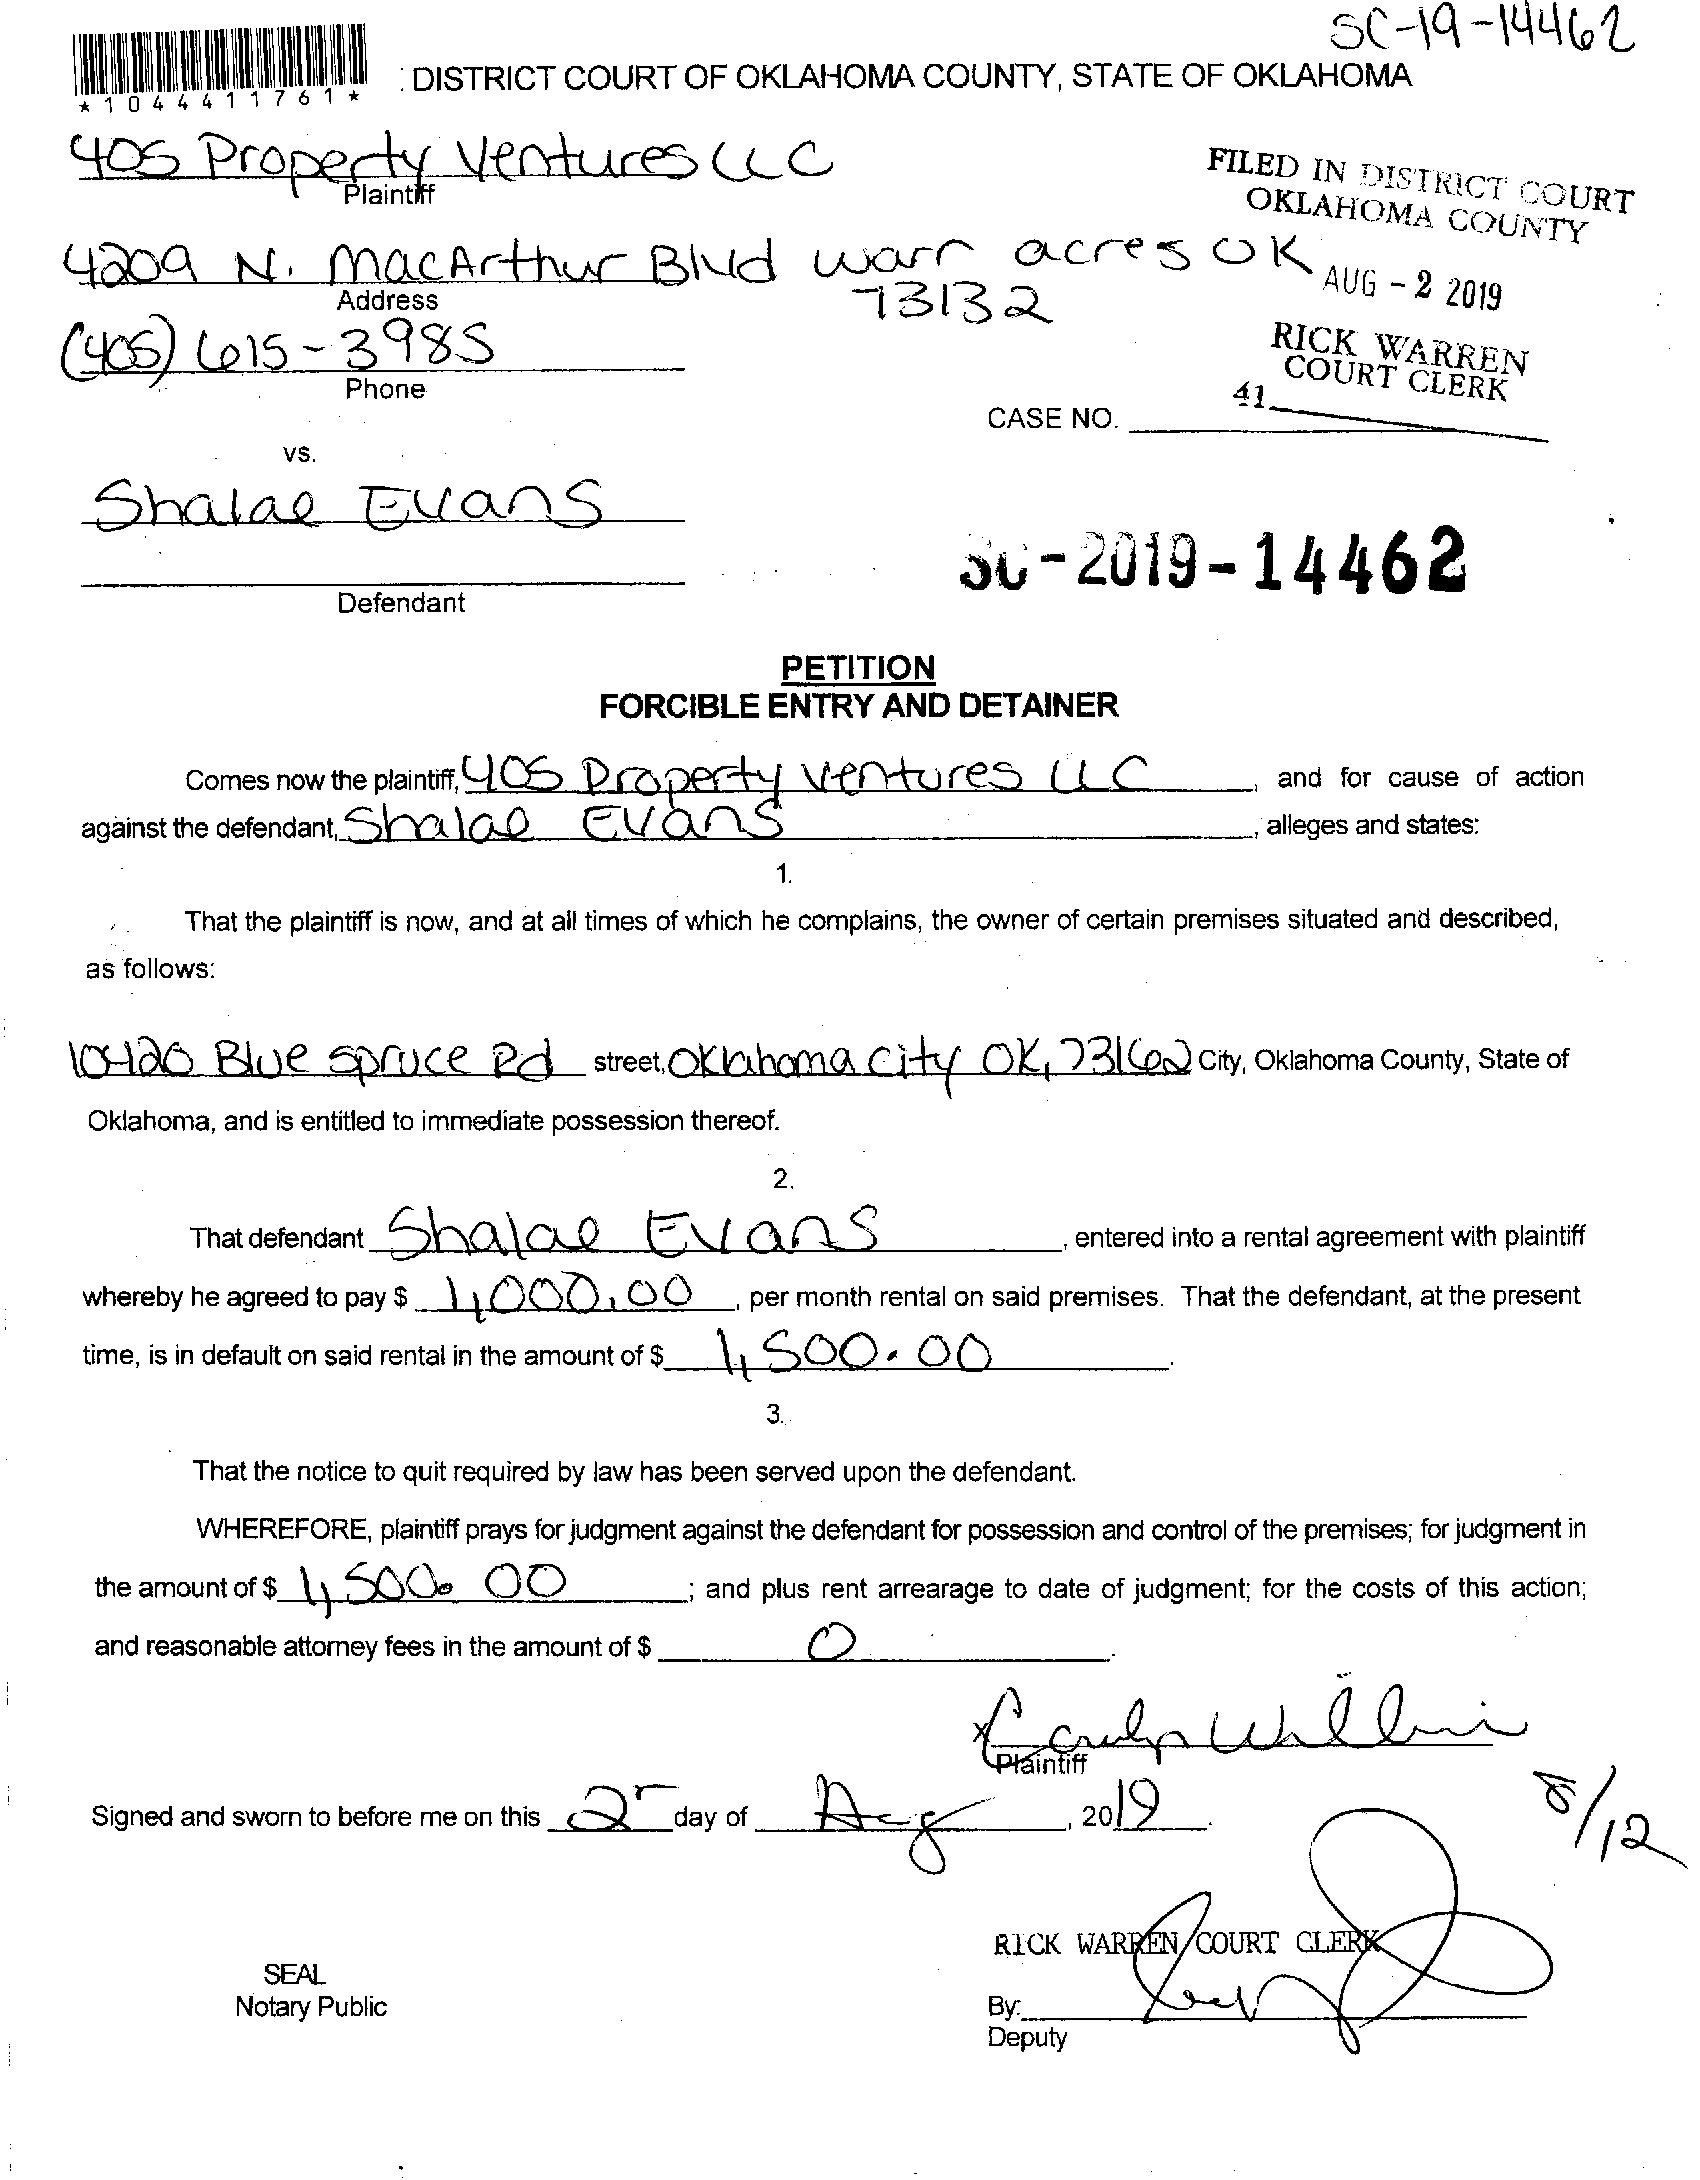 SC-19-14462
*1044411761*
: DISTRICT COURT OF OKLAHOMA COUNTY, STATE OF OKLAHOMA
405 Property Ventures LLC
Plaintiff
FILED IN DISTRICT COURT
OKLAHOMA COUNTY
4209 N. MacArthur Blvd warr acres OK
73132
Address
AUG - 2 2019
(405) 615-3985
Phone
RICK WARREN
COURT CLERK
41
CASE NO.
vs.
Shalae Evans
Defendant
SC-2019-14462
PETITION
FORCIBLE ENTRY AND DETAINER
Comes now the plaintiff, 405 Property Ventures LLC, and for cause of action
against the defendant, Shalae Evans, alleges and states:
1.
That the plaintiff is now, and at all times of which he complains, the owner of certain premises situated and described,
as follows:
10420 Blue spruce Rd street, Oklahoma city OK, 73162 City, Oklahoma County, State of
Oklahoma, and is entitled to immediate possession thereof.
2.
That defendant Shalae Evans, entered into a rental agreement with plaintiff
whereby he agreed to pay $ 1,000.00, per month rental on said premises. That the defendant, at the present
time, is in default on said rental in the amount of $ 1,500.00.
3.
That the notice to quit required by law has been served upon the defendant.
WHEREFORE, plaintiff prays for judgment against the defendant for possession and control of the premises; for judgment in
the amount of $ 1,500.00; and plus rent arrearage to date of judgment; for the costs of this action;
and reasonable attorney fees in the amount of $ 0.
x
Plaintiff
Signed and sworn to before me on this 2 day of Aug, 2019.
8/12
RICK WARREN COURT CLERK
SEAL
Notary Public
By:
Deputy